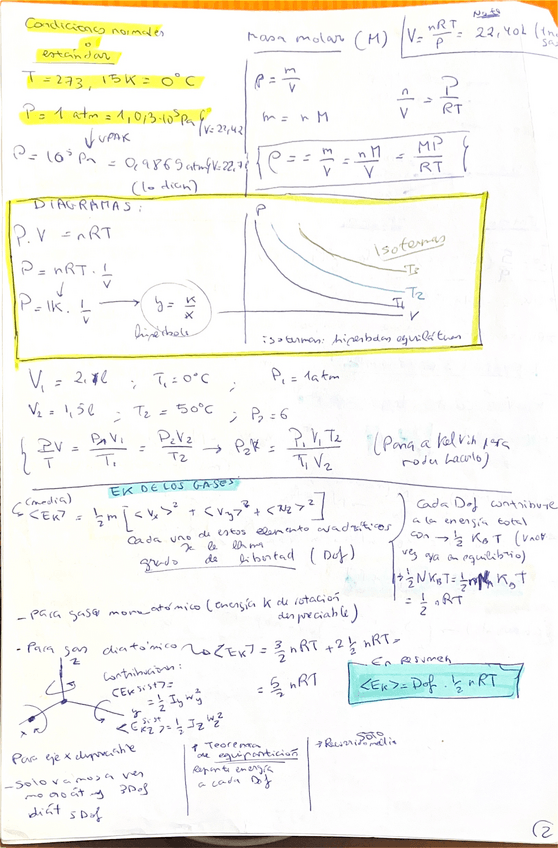 Condiciones normales
o
estándar
T = 273,15K = 0°C
P = 1 atm = 1,013·10⁵ Pa (V=22,42
↓ IUPAC
P = 10⁵ Pa = 0,9869 atm (V=22,7)
(lo dicen)
Masa molar (M)
V = nRT/P = 22,40L
ρ = m/V
m = n M
n/V = P/RT
ρ = = m/V = nM/V = MP/RT
DIAGRAMAS:
P. V = nRT
P = nRT · 1/V
P = K · 1/V → y = K/x
hipérbola
P
Isotermas
T3
T2
T1
V
isotermas: hipérbolas equiláteras
V₁ = 2,1l ; T₁ = 0°C ; P₁ = 1atm
V₂ = 1,5l ; T₂ = 50°C ; P₂ = 6
P₁V₁/T₁ = P₂V₂/T₂ → P₂ = P₁V₁T₂/T₁V₂ (Pasa a Kelvin para
poder hacerlo)
EK DE LOS GASES
(media)
<EK> = ½ m [<vx>² + <vy>² + <vz>²]
Cada uno de estos elemento cuadráticos
se le llama
grado de libertad (Dof)
Cada Dof contribuye
a la energía total
con → ½ KB T (una
vez ya en equilibrio)
→ ½ N KB T = ½ n NA KB T
= ½ nRT
- Para gases monoatómico (energía K de rotación
despreciable)
- Para gas diatómico <EK> = 3/2 nRT + 2 ½ nRT =
= 5/2 nRT
Contribuciones:
= ½ Iy wy²
= ½ Iz wz²
z
y
x
En resumen
<EK> = Dof · ½ nRT
Para eje x despreciable
- Solo vamos a ver
monoát y 3Dof
diát 5Dof
Teorema
de equipartición
Reparte energía
a cada Dof
Solo
2